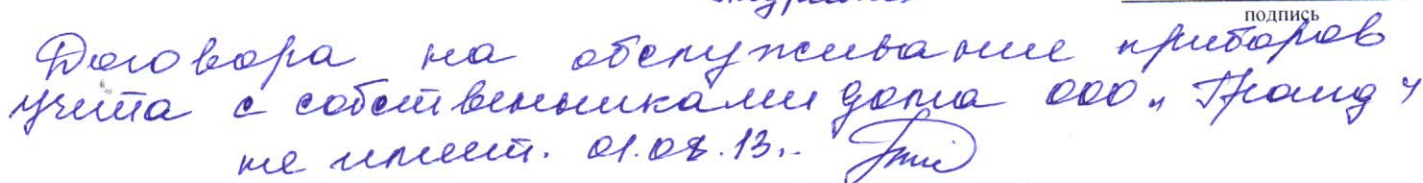 подпись
Договора на обслуживание приборов
учёта с собственниками дома ООО „Гранд“
не имеет. 01.08.13..